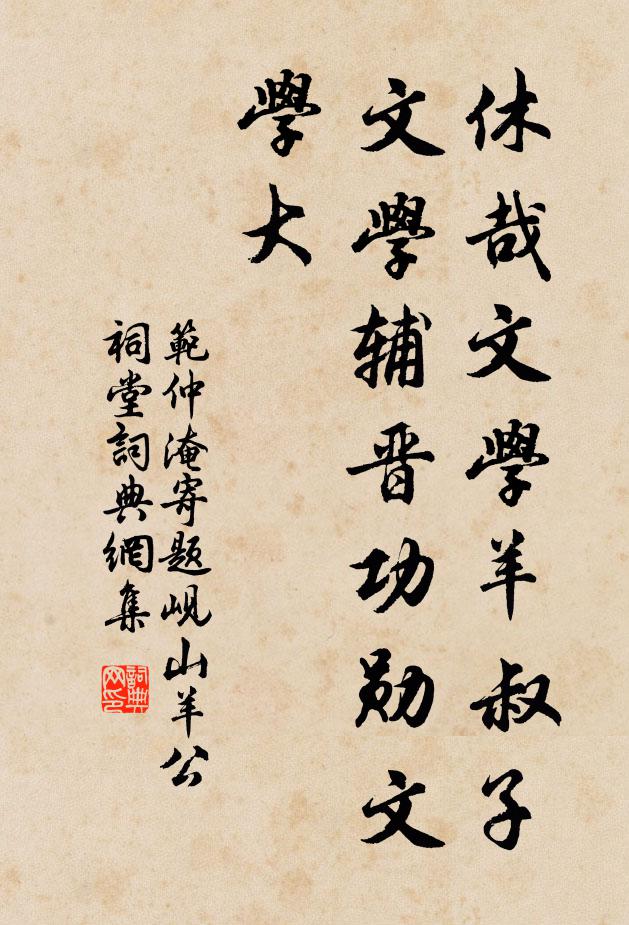 休哉文學羊叔子
文學輔晋功勋文
學大
範仲淹寄題峴山羊公
祠堂詞典網集
詞典
网印